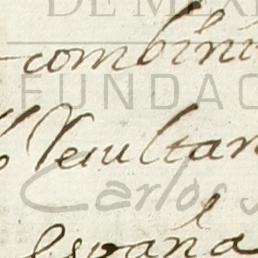 DE MÉXI
combini
FUNDAC
Resultan
Carlos S
España